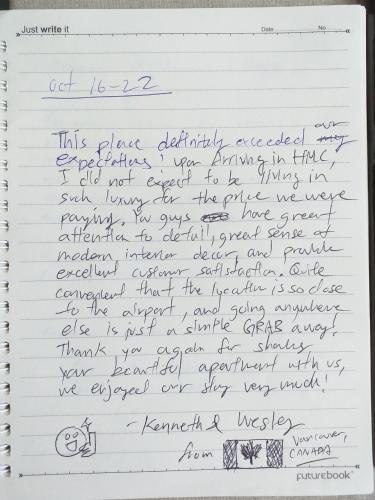 Just write it
Date
No
oct 16-22
This place definitely exceeded our
expectations! Upon Arriving in HMC,
I did not expect to be living in
such luxury for the price we were
paying. You guys have great
attention to detail, great sense of
modern interior decor, and provide
excellent customer satisfaction. Quite
convenient that the lycation is so close
to the airport, and going anywhere
else is just a simple GRAB away!
Thank you again for sharing
your beautiful apartment with us,
we enjoyed our stay very much!
- Kenneth & Wesley
from
Vancouver,
CANADA
futurebook